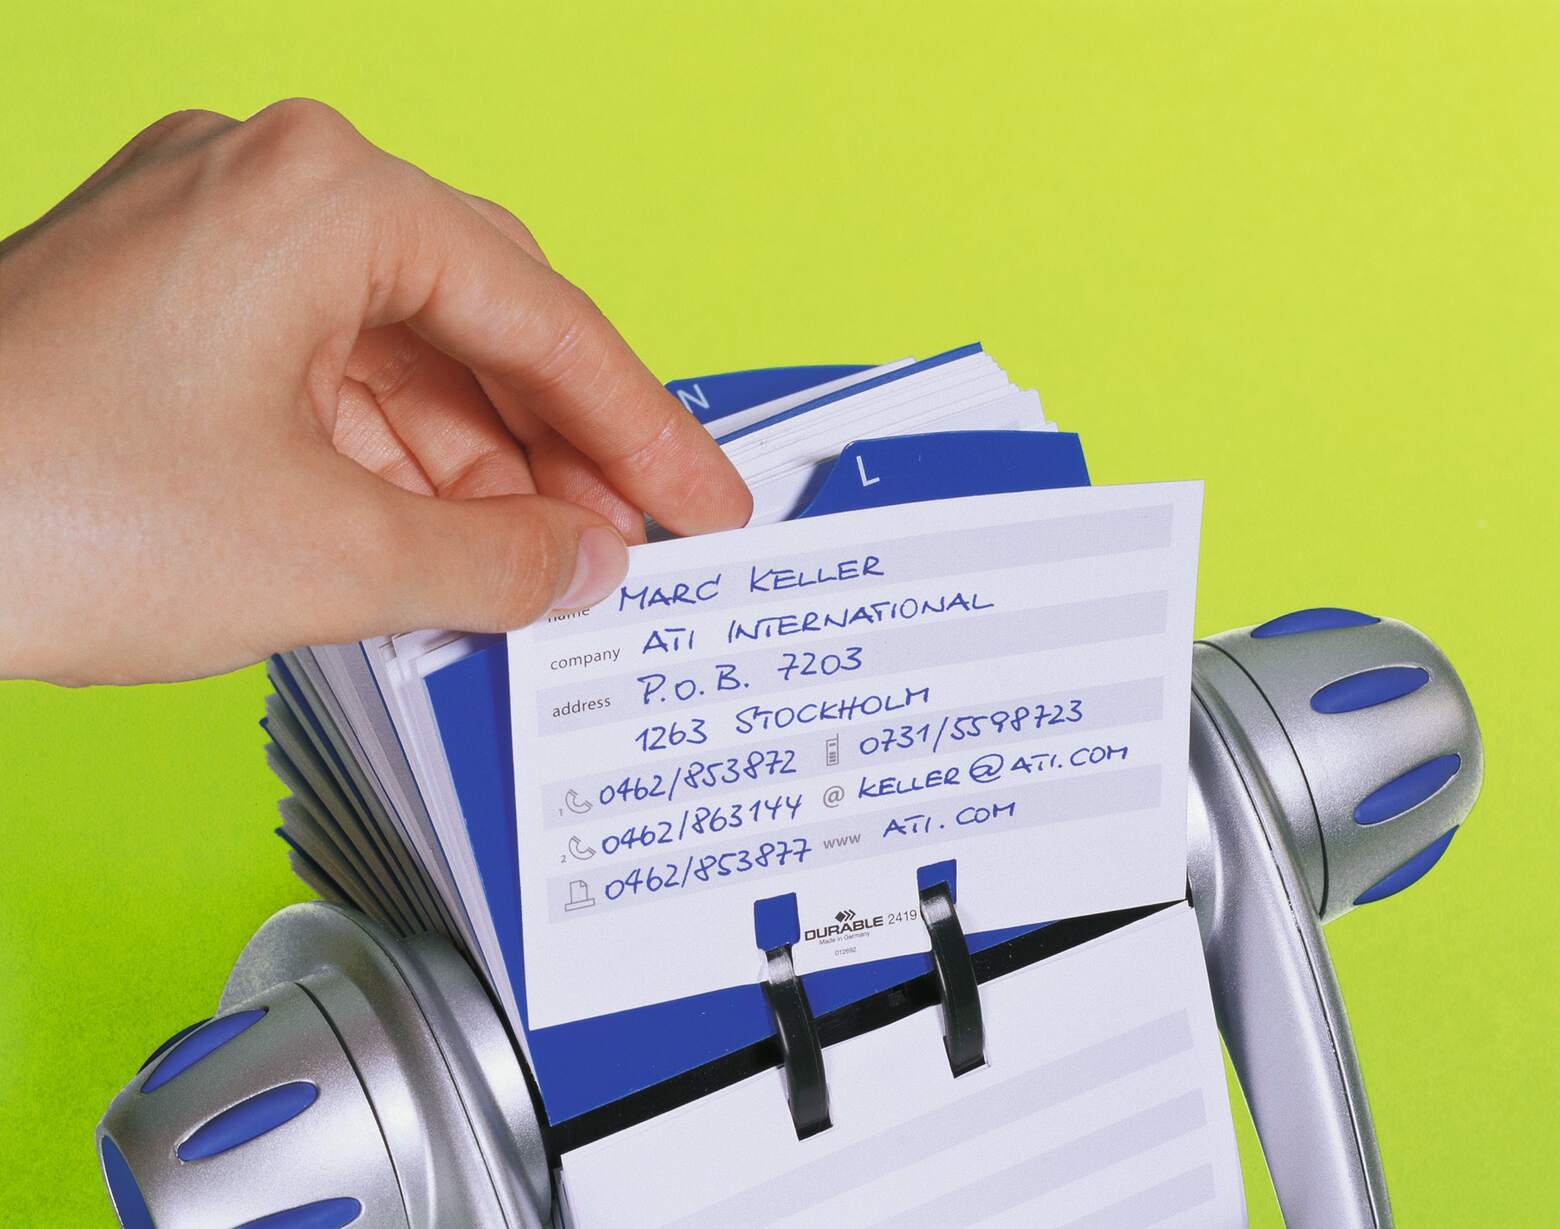 N
L
name MARC KELLER
company ATI INTERNATIONAL
address P.O.B. 7203
1263 STOCKHOLM
1 0462/853872 0731/5598723
2 0462/863144 @ KELLER@ATI.COM
0462/853877 www ATI.COM
DURABLE 2419
Made in Germany
012692